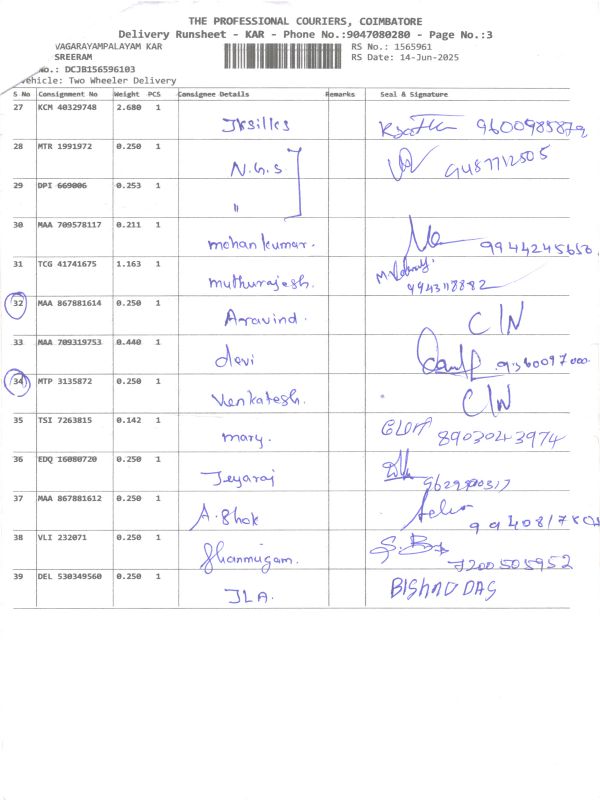 THE PROFESSIONAL COURIERS, COIMBATORE
Delivery Runsheet - KAR - Phone No.:9047080280 - Page No.:3
VAGARAYAMPALAYAM KAR RS No.: 1565961
SREERAM RS Date: 14-Jun-2025
No.: DCJB156596103
ehicle: Two Wheeler Delivery
S No Consignment No Weight PCS Consignee Details Remarks Seal & Signature
27 KCM 40329748 2.680 1
Jksilks 9600985879
28 MTR 1991972 0.250 1
N.G.S 9487712505
29 DPI 669006 0.253 1
"
30 MAA 709578117 0.211 1
mohankumar. 9944245656
31 TCG 41741675 1.163 1
muthurajesh. 9943118882
32 MAA 867881614 0.250 1
Aravind. C/N
33 MAA 709319753 0.440 1
devi 9360097000
34 MTP 3135872 0.250 1
Venkatesh. C/N
35 TSI 7263815 0.142 1
mary. 8903043974
36 EDQ 16080720 0.250 1
Jeyaraj
37 MAA 867881612 0.250 1
A.Shok
38 VLI 232071 0.250 1
Shanmugam. 7200505952
39 DEL 530349560 0.250 1
JLA. BISHNU DAS